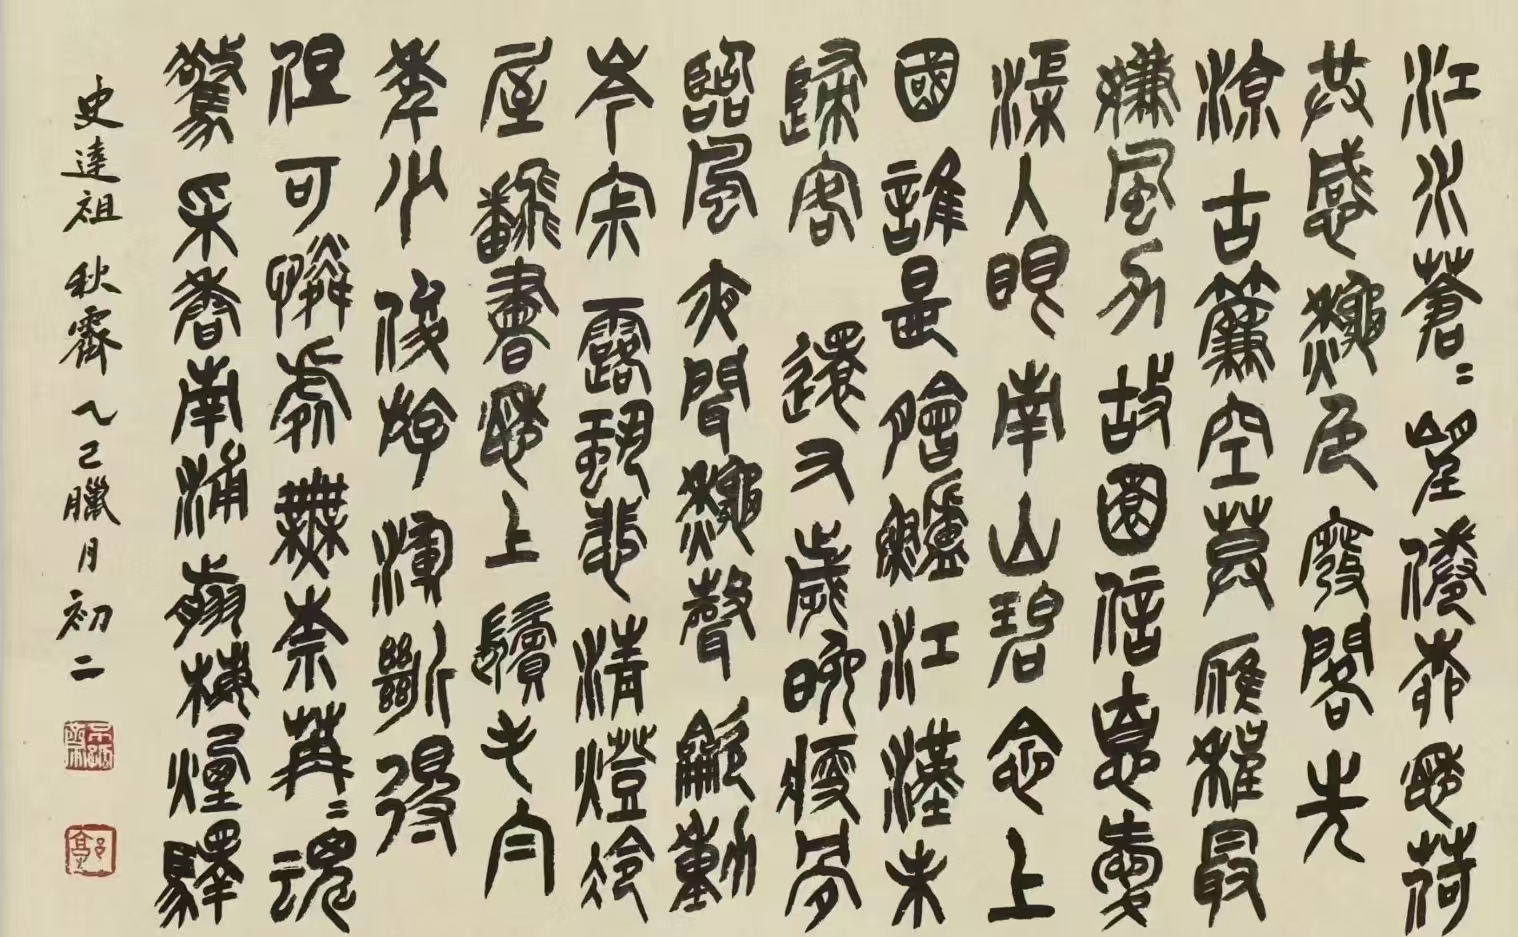 江水蒼〻望倦柳愁荷
共感龝色廢閣先
涼古簾空莫雁程最
嫌風力故園信息愛
渠入眼南山碧念上
國誰是膾鱸江漢未
歸客 還又歲晚瘦骨
臨風夜聞龝聲龡動
岑寂露蛩悲清燈冷
屋翻書愁上鬢毛白
年少俊游渾斷得
但可憐處無奈苒〻魂
驚采香南浦剪梅煙驛
史達祖 秋霽 乙巳臘月初二